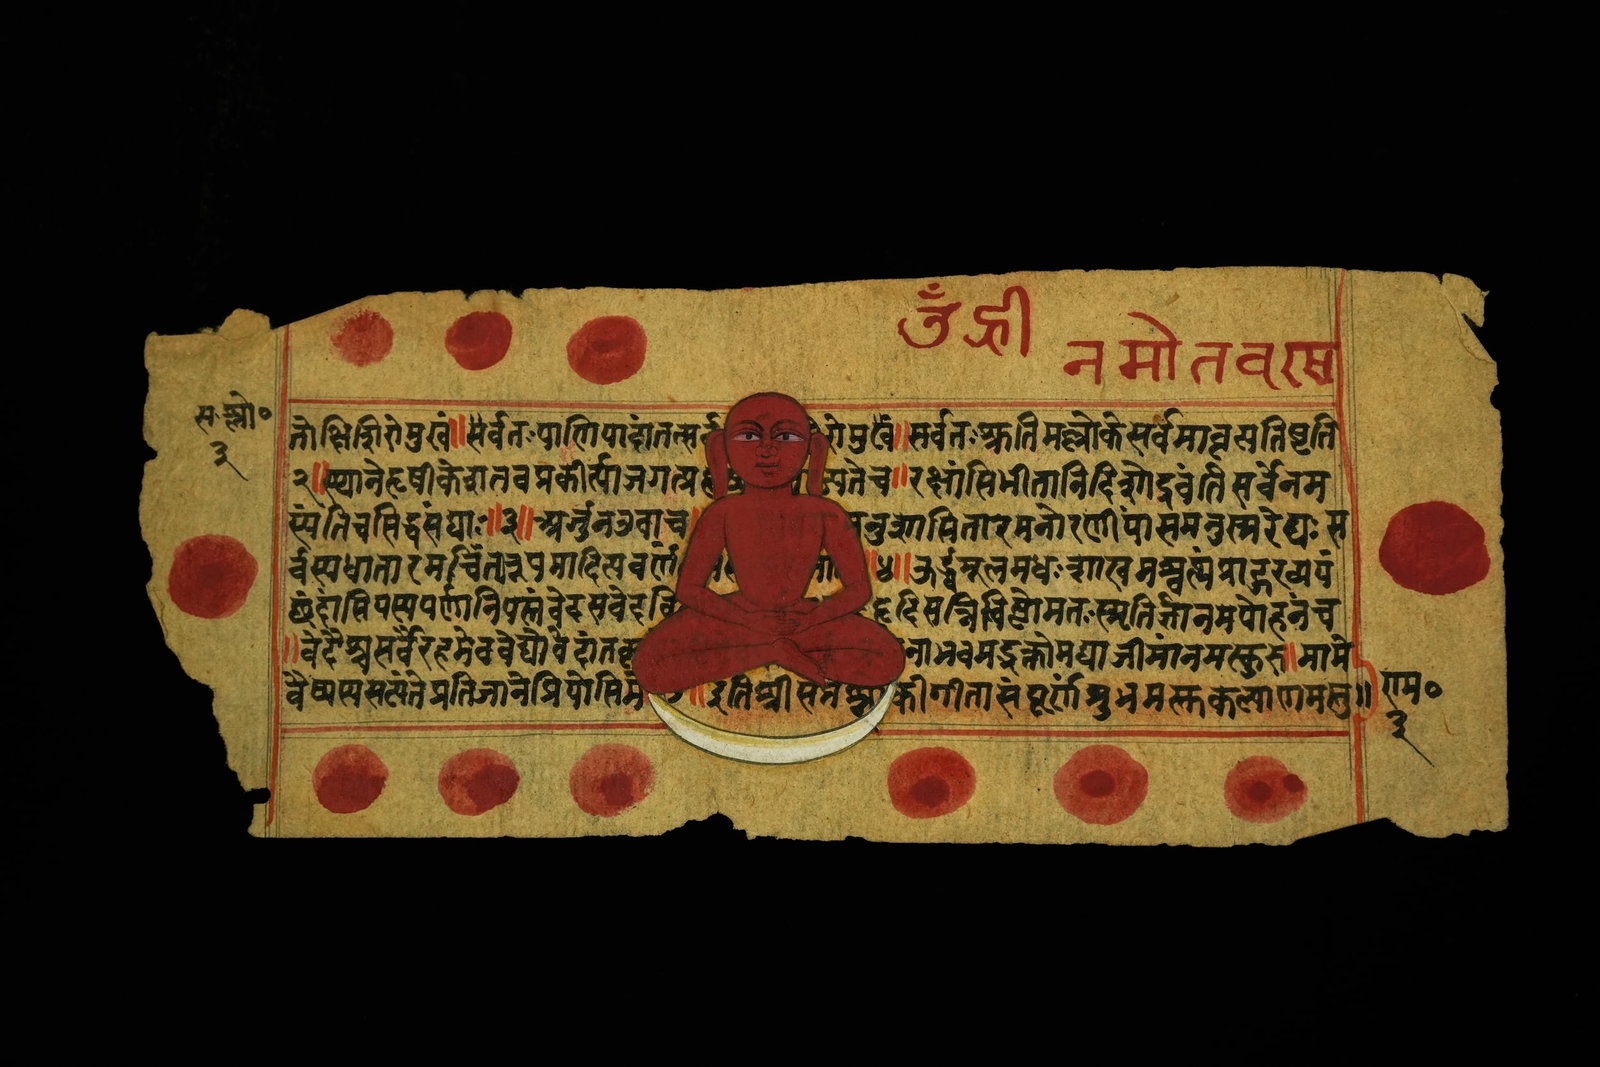 ॐ ह्री
न मो त व र स
स॰श्लो॰
३
तोक्षिशिरोमुखं॥सर्वतःपाणिपादांतत्सर्व रोमुखं॥सर्वतःश्रुतिमल्लोकेसर्वमावृत्यतिष्टति
२॥स्थानेहृषीकेशतवप्रकीर्त्याजगत्प्रहृ ज्यतेच॥रक्षांसिभीतानिदिशोद्रवंतिसर्वेनम
स्यंतिचसिद्धसंघाः॥३॥अर्जुनउवाच मनुशासितारमनोरणीयांसमनुस्मरेद्यः स
र्वस्यधातारमचिंत्यरूपमादित्यवर्णं ॥४॥ऊर्द्ध्वमूलमधःशाखमश्वत्थंप्राहुरव्ययं
छंदांसियस्यपर्णानियस्तंवेदसवेदवि हृदिसन्निविष्टोमतःस्मृतिर्ज्ञानमपोहनंच
॥वेदैश्चसर्वैरहमेववेद्योवेदांतकृ नाभवमद्भक्तोमद्याजीमांनमस्कुरु॥मामे
वैष्यस्यसत्यंतेप्रतिजानेप्रियोसिमे ॥इतिश्रीसप्तश्लोकीगीतासंपूर्णं शुभमस्तुकल्याणमस्तु॥
राम॰
३